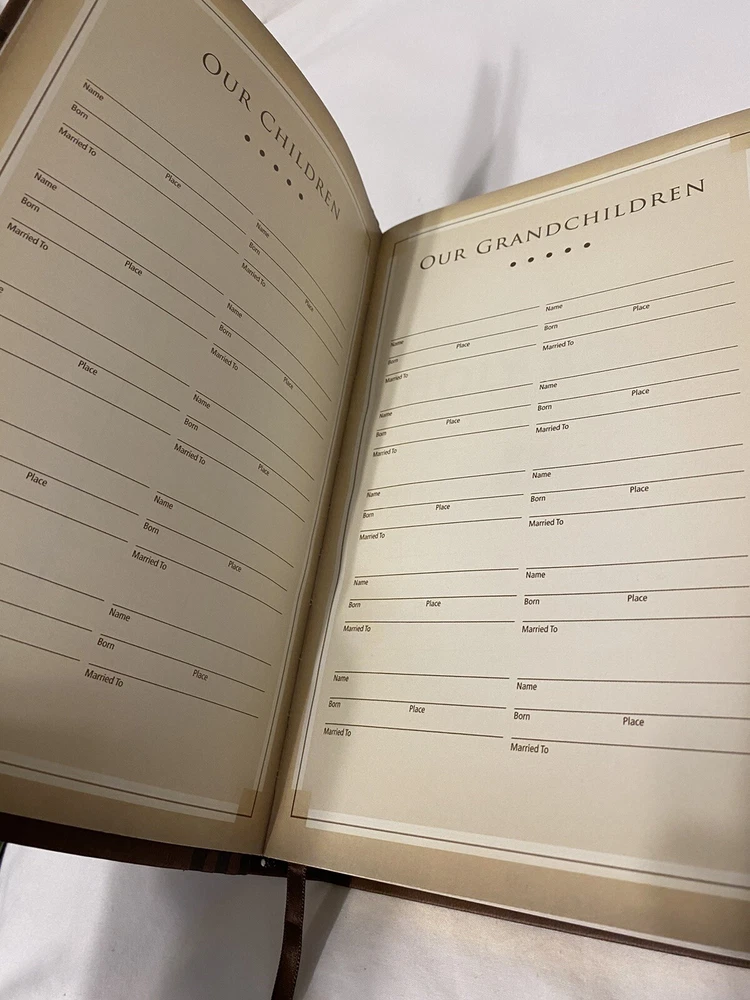 OUR CHILDREN
Name
Born Place
Married To
Name
Born Place
Married To
Place
Place
Name
Born Place
Married To
Name
Born Place
Married To
Name
Born Place
Married To
Name
Born Place
Married To
Name
Born Place
Married To
OUR GRANDCHILDREN
Name
Born Place
Married To
Name
Born Place
Married To
Name
Born Place
Married To
Name
Born Place
Married To
Name
Born Place
Married To
Name
Born Place
Married To
Name
Born Place
Married To
Name
Born Place
Married To
Name
Born Place
Married To
Name
Born Place
Married To